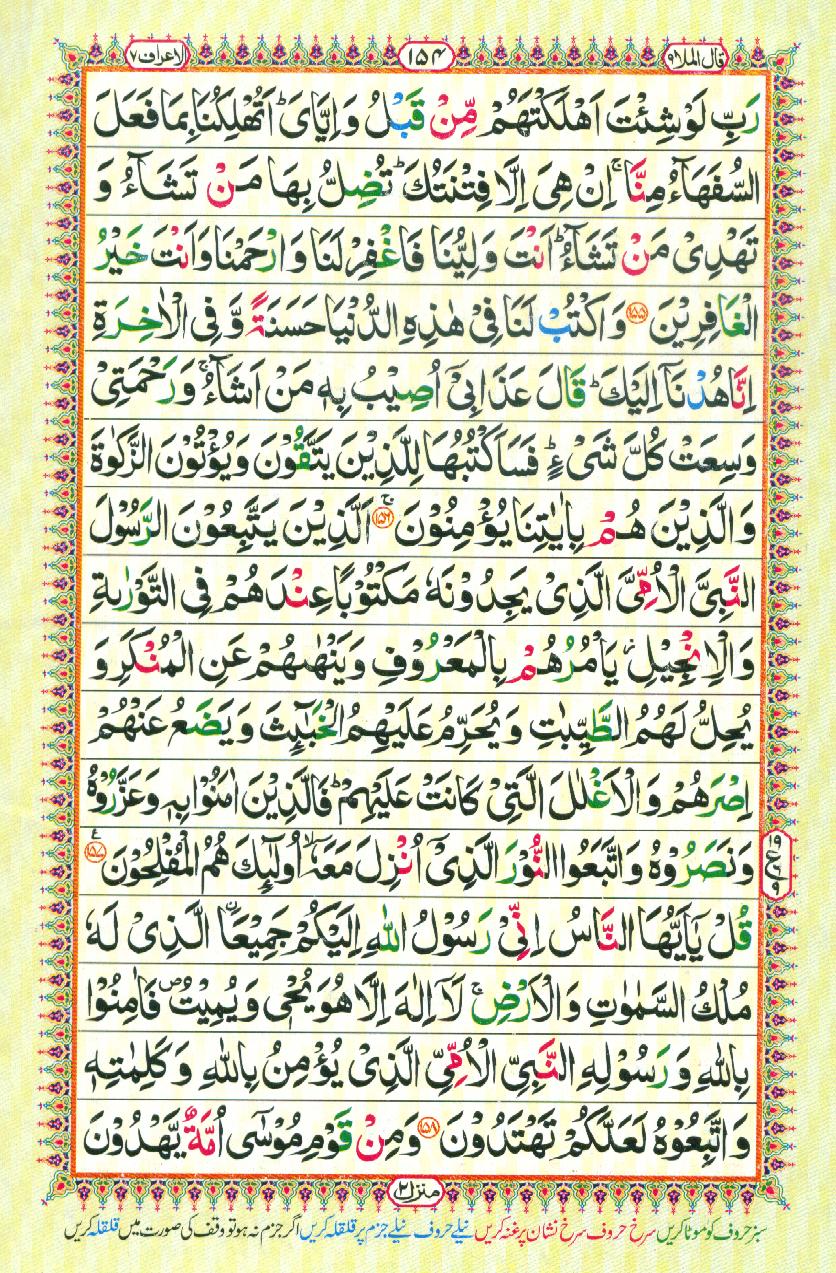 قال الملا ۹
۱۵۴
الاعراف ۷
رَبِّ لَوْ شِئْتَ اَهْلَكْتَهُمْ مِّنْ قَبْلُ وَاِيَّايَ ؕ اَتُهْلِكُنَا بِمَا فَعَلَ
السُّفَهَآءُ مِنَّا ۚ اِنْ هِىَ اِلَّا فِتْنَتُكَ ؕ تُضِلُّ بِهَا مَنْ تَشَآءُ وَ
تَهْدِىْ مَنْ تَشَآءُ ؕ اَنْتَ وَلِيُّنَا فَاغْفِرْ لَنَا وَارْحَمْنَا وَاَنْتَ خَيْرُ
الْغَافِرِيْنَ ۝۱۵۵ وَاكْتُبْ لَنَا فِىْ هٰذِهِ الدُّنْيَا حَسَنَةً وَّفِى الْاٰخِرَةِ
اِنَّا هُدْنَآ اِلَيْكَ ؕ قَالَ عَذَابِىْٓ اُصِيْبُ بِهٖ مَنْ اَشَآءُ ۚ وَرَحْمَتِىْ
وَسِعَتْ كُلَّ شَىْءٍ ؕ فَسَاَكْتُبُهَا لِلَّذِيْنَ يَتَّقُوْنَ وَيُؤْتُوْنَ الزَّكٰوةَ
وَالَّذِيْنَ هُمْ بِاٰيٰتِنَا يُؤْمِنُوْنَ ۝۱۵۶ۚ اَلَّذِيْنَ يَتَّبِعُوْنَ الرَّسُوْلَ
النَّبِىَّ الْاُمِّىَّ الَّذِىْ يَجِدُوْنَهٗ مَكْتُوْبًا عِنْدَهُمْ فِى التَّوْرٰىةِ
وَالْاِنْجِيْلِ ؗ يَاْمُرُهُمْ بِالْمَعْرُوْفِ وَيَنْهٰىهُمْ عَنِ الْمُنْكَرِ وَ
يُحِلُّ لَهُمُ الطَّيِّبٰتِ وَيُحَرِّمُ عَلَيْهِمُ الْخَبٰٓئِثَ وَيَضَعُ عَنْهُمْ
اِصْرَهُمْ وَالْاَغْلٰلَ الَّتِىْ كَانَتْ عَلَيْهِمْ ؕ فَالَّذِيْنَ اٰمَنُوْا بِهٖ وَعَزَّرُوْهُ
وَنَصَرُوْهُ وَاتَّبَعُوا النُّوْرَ الَّذِىْٓ اُنْزِلَ مَعَهٗٓ ۙ اُولٰٓئِكَ هُمُ الْمُفْلِحُوْنَ ۝۱۵۷ ع
قُلْ يٰٓاَيُّهَا النَّاسُ اِنِّىْ رَسُوْلُ اللّٰهِ اِلَيْكُمْ جَمِيْعَا ۨ الَّذِىْ لَهٗ
مُلْكُ السَّمٰوٰتِ وَالْاَرْضِ ۚ لَآ اِلٰهَ اِلَّا هُوَ يُحْىٖ وَيُمِيْتُ ۪ فَاٰمِنُوْا
بِاللّٰهِ وَرَسُوْلِهِ النَّبِىِّ الْاُمِّىِّ الَّذِىْ يُؤْمِنُ بِاللّٰهِ وَكَلِمٰتِهٖ
وَاتَّبِعُوْهُ لَعَلَّكُمْ تَهْتَدُوْنَ ۝۱۵۸ وَمِنْ قَوْمِ مُوْسٰٓى اُمَّةٌ يَّهْدُوْنَ
منزل ۲
سبز حروف کو موٹا کریں سرخ حروف سرخ نشان پر غنہ کریں نیلے حروف نیلے جزم پر قلقلہ کریں اگر جزم نہ ہو تو وقف کی صورت میں قلقلہ کریں